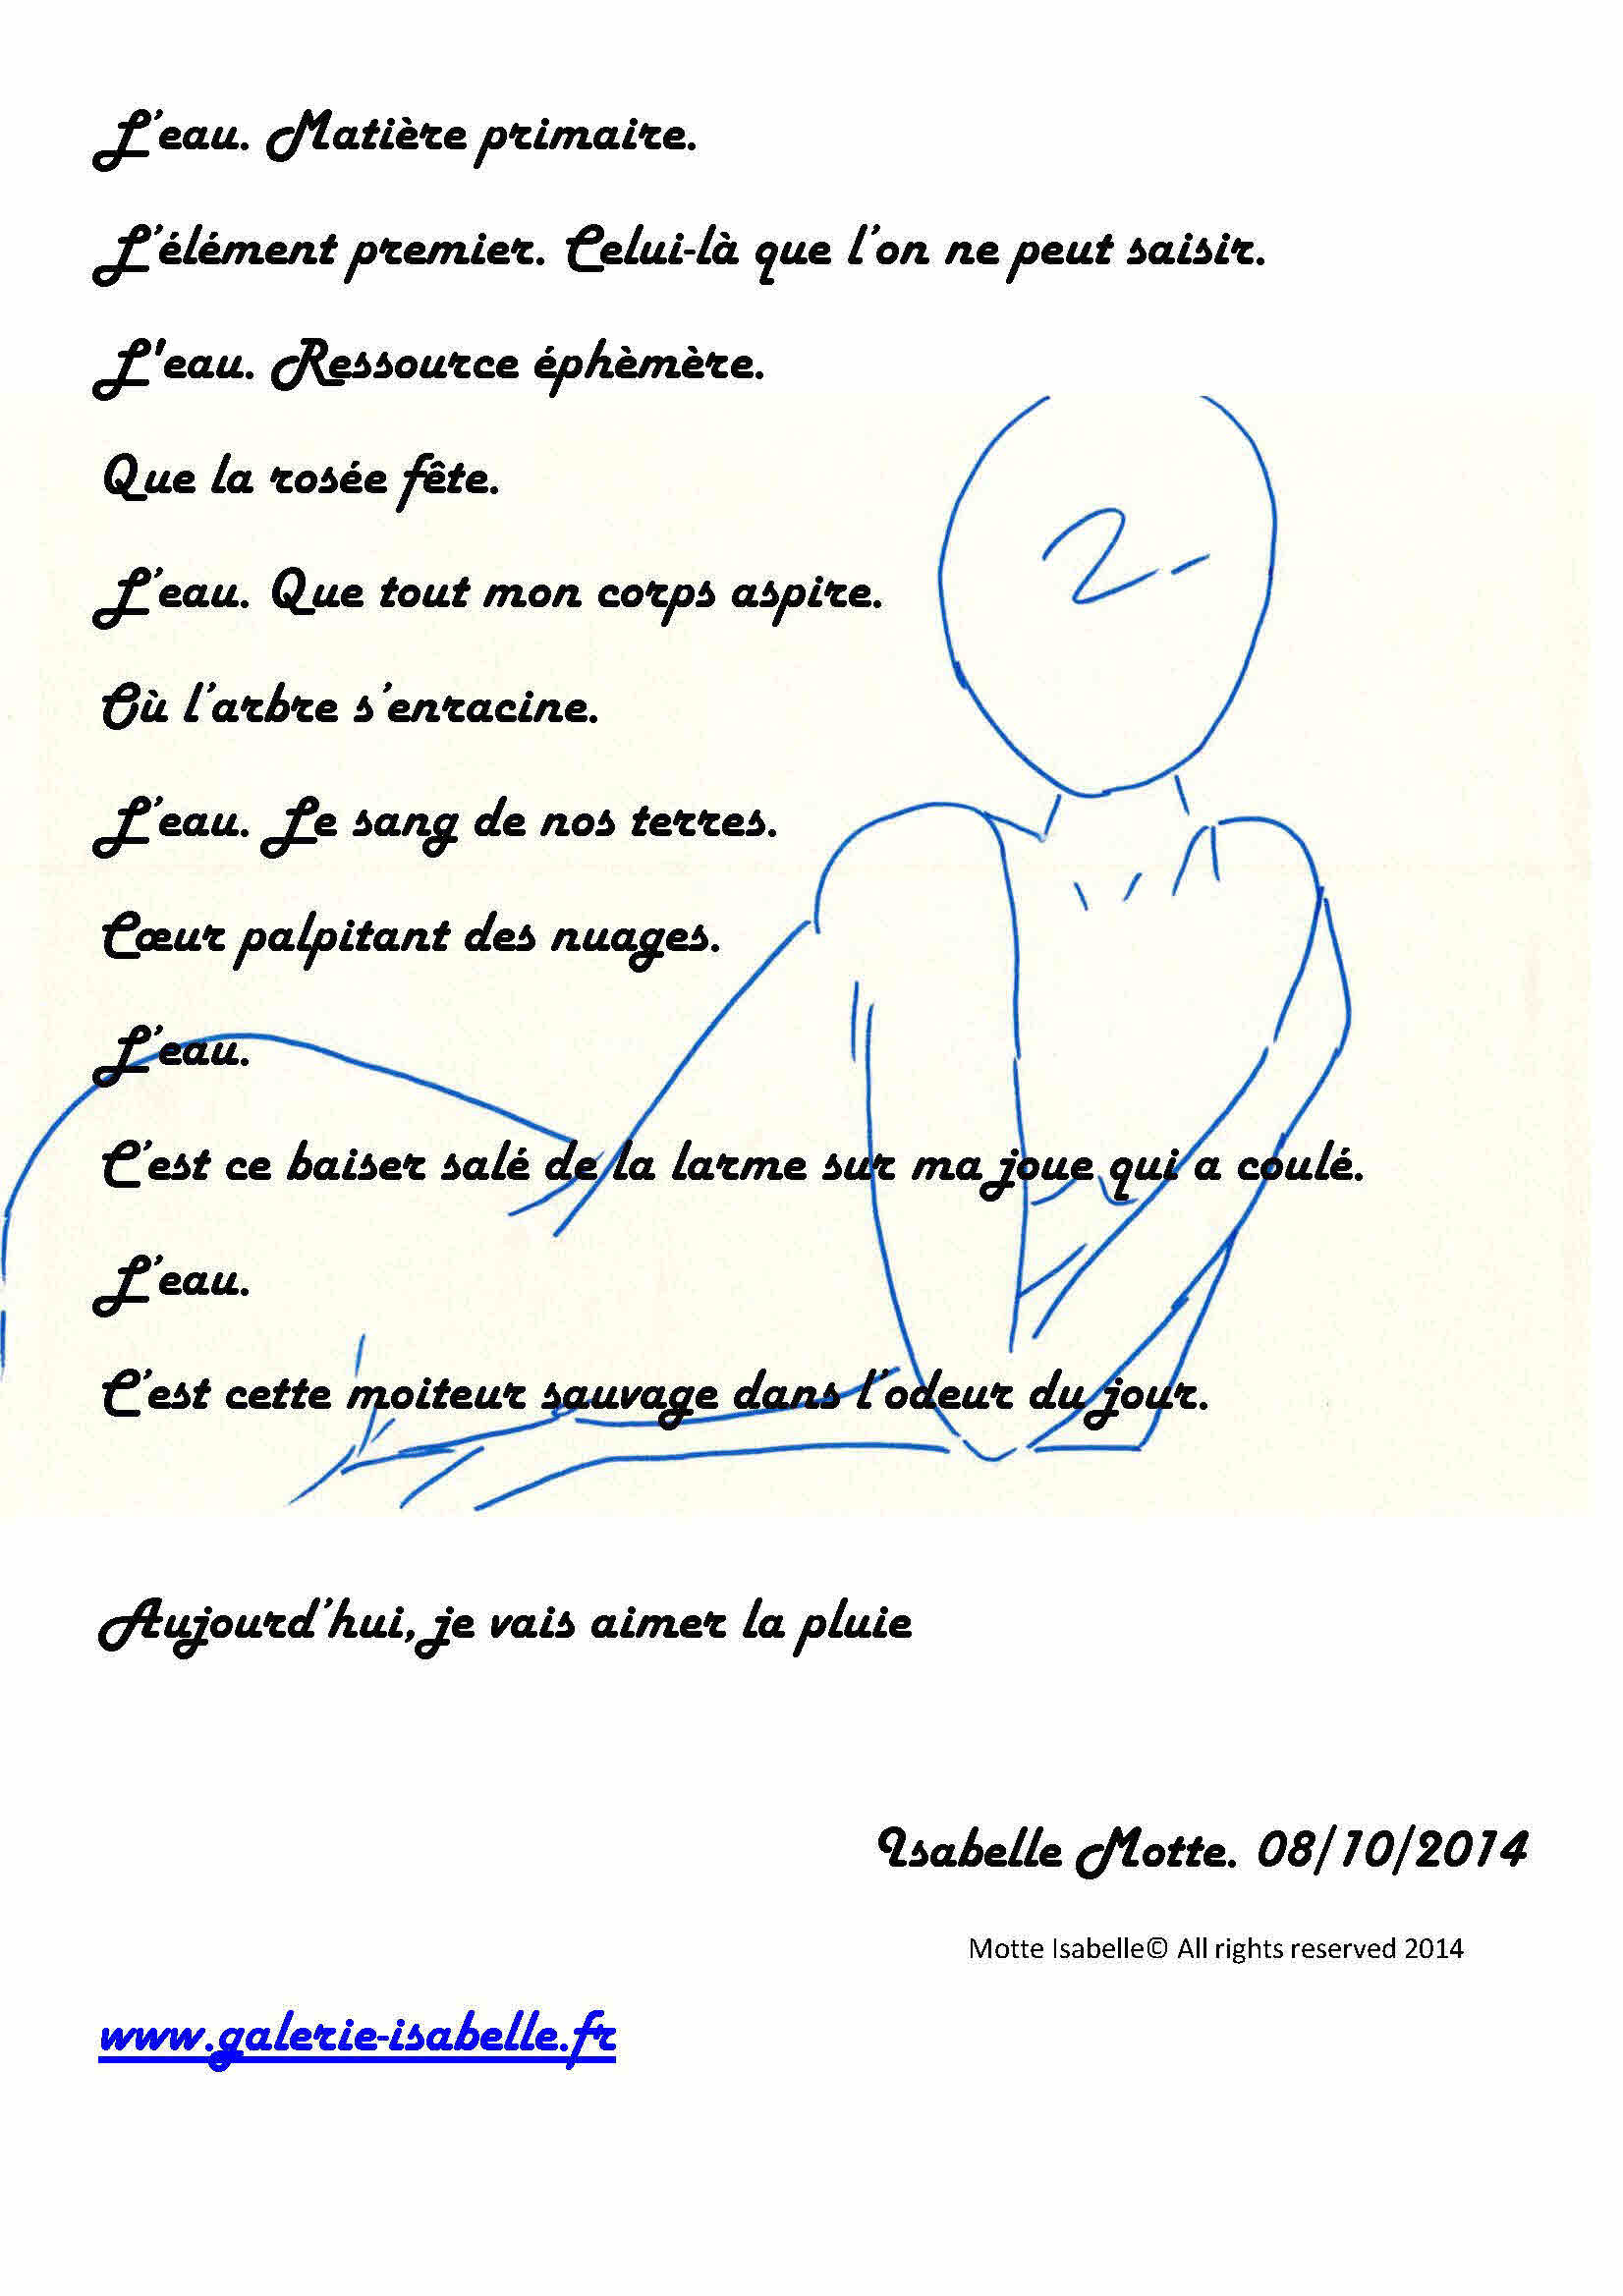 L'eau. Matière primaire.
L'élément premier. Celui-là que l'on ne peut saisir.
L'eau. Ressource éphèmère.
Que la rosée fête.
L'eau. Que tout mon corps aspire.
Où l'arbre s'enracine.
L'eau. Le sang de nos terres.
Cœur palpitant des nuages.
L'eau.
C'est ce baiser salé de la larme sur ma joue qui a coulé.
L'eau.
C'est cette moiteur sauvage dans l'odeur du jour.
Aujourd'hui, je vais aimer la pluie
Isabelle Motte. 08/10/2014
Motte Isabelle© All rights reserved 2014
www.galerie-isabelle.fr